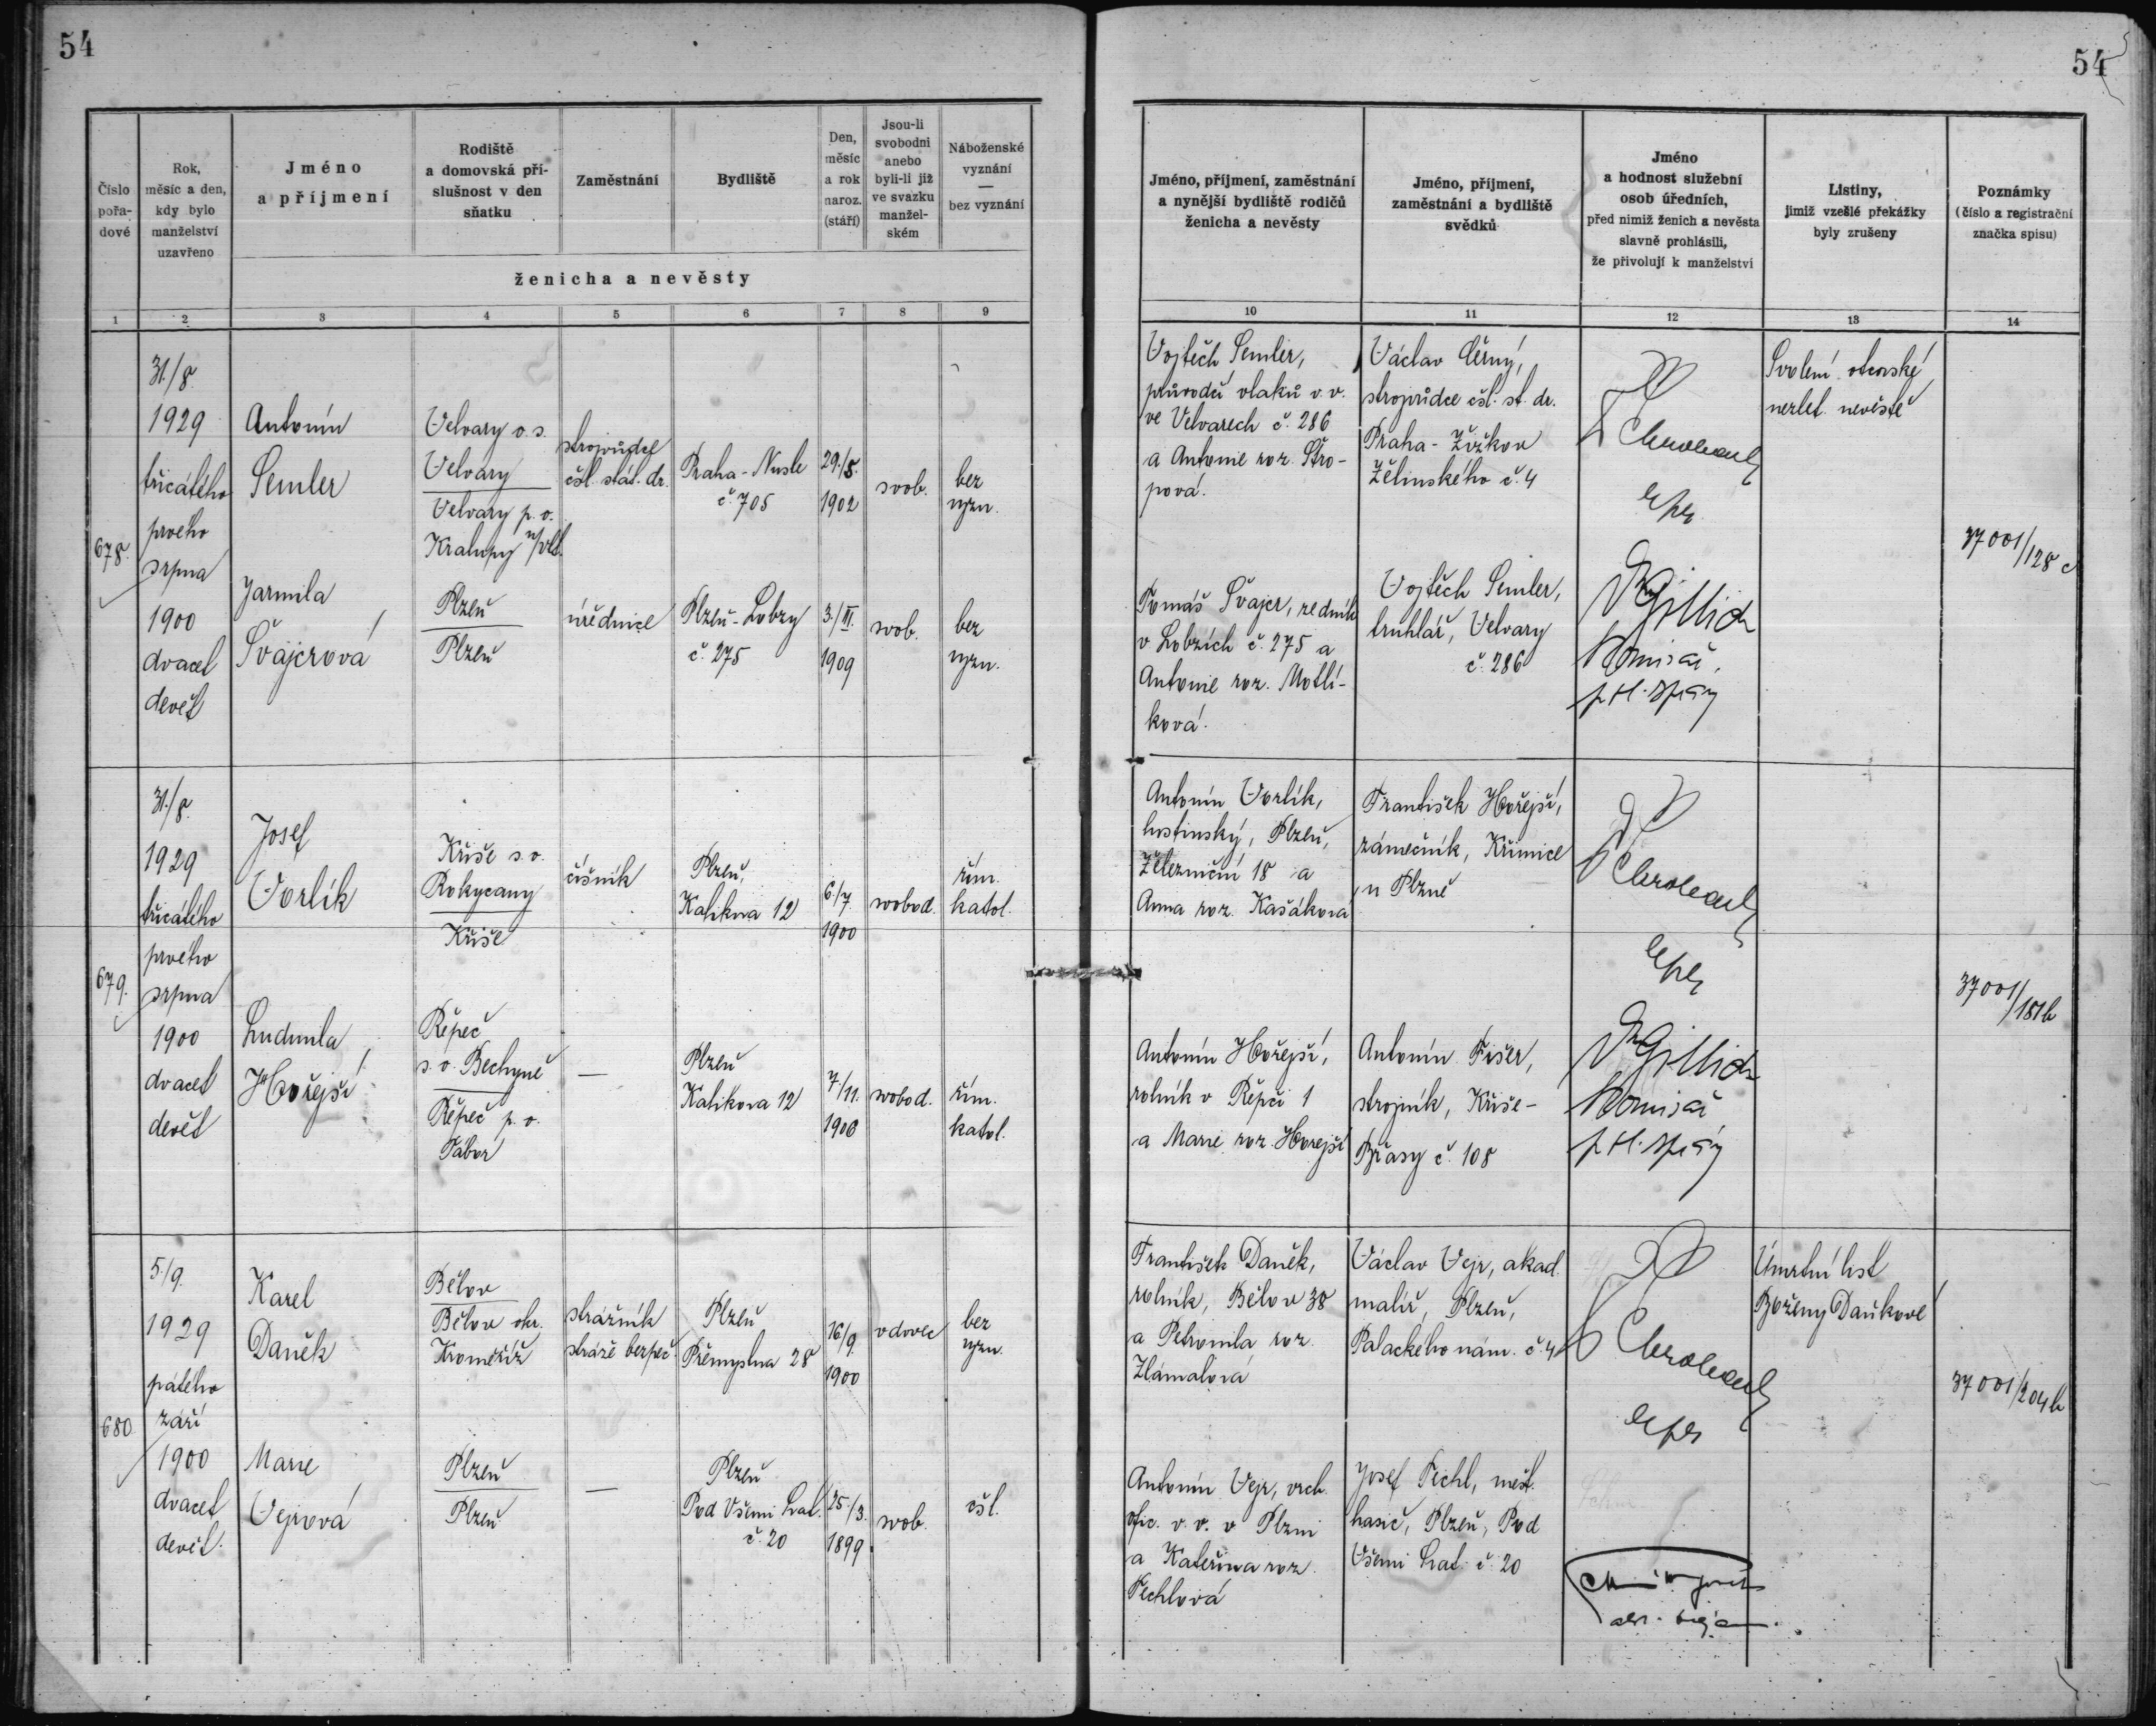 54
54
Číslo
pořa-
dové
Rok,
měsíc a den,
kdy bylo
manželství
uzavřeno
Jméno
a příjmení
Rodiště
a domovská pří-
slušnost v den
sňatku
Zaměstnání
Bydliště
Den,
měsíc
a rok
naroz.
(stáří)
Jsou-li
svobodni
anebo
byli-li již
ve svazku
manžel-
ském
Náboženské
vyznání
—
bez vyznání
ženicha a nevěsty
1 2 3 4 5 6 7 8 9
Jméno, příjmení, zaměstnání
a nynější bydliště rodičů
ženicha a nevěsty
Jméno, příjmení,
zaměstnání a bydliště
svědků
Jméno
a hodnost služební
osob úředních,
před nimiž ženich a nevěsta
slavně prohlásili,
že přivolují k manželství
Listiny,
jimiž vzešlé překážky
byly zrušeny
Poznámky
(číslo a registrační
značka spisu)
10 11 12 13 14
678.
31./8.
1929
třicátého
prvého
srpna
1900
dvacet
devět
Antonín
Semler
Velvary o. s.
Velvary
Velvary p. o.
Kralupy n/Vlt.
strojvůdce
čsl. stát. dr.
Praha - Nusle
č. 705
29./5.
1902
svob.
bez
vyzn.
Jarmila
Švajcrová
Plzeň
Plzeň
úřednice
Plzeň - Lobzy
č. 275
3./III.
1909
svob.
bez
vyzn.
Vojtěch Semler,
průvodčí vlaků v. v.
ve Velvarech č. 286
a Antonie roz. Štro-
pová.
Tomáš Švajcr, zedník
v Lobzích č. 275 a
Antonie roz. Motlí-
ková.
Václav Černý,
strojvůdce čsl. st. dr.
Praha - Žižkov
Želinského č. 4
Vojtěch Semler,
truhlář, Velvary
č. 286
Gillich
Komisař
Svolení otcovské
nezlet. nevěstě
37001/128 c
679.
31./8.
1929
třicátého
prvého
srpna
1900
dvacet
devět
Josef
Vorlík
Kříše s. o.
Rokycany
Kříše
číšník
Plzeň,
Kalikova 12
6/7.
1900
svobod.
řím.
katol.
Ludmila
Hořejší
Řepeč
s. o. Bechyně
Řepeč p. o.
Tábor
—
Plzeň
Kalikova 12
7/11.
1906
svobod.
řím.
katol.
Antonín Vorlík,
hostinský, Plzeň,
Železniční 18 a
Anna roz. Kašáková
Antonín Hořejší,
rolník v Řepči 1
a Marie roz. Hořejší
František Hořejší,
zámečník, Křimice
u Plzně
Antonín Fišer,
strojník, Kříše -
Břasy č. 108
Gillich
Komisař
37001/181 b
680.
5./9.
1929
pátého
září
1900
dvacet
devět.
Karel
Daněk
Bělov
Bělov okr.
Kroměříž
strážník
stráže bezpeč.
Plzeň
Přemyslova 28
16/9.
1900
vdovec
bez
vyzn.
Marie
Vejrová
Plzeň
Plzeň
—
Plzeň
Pod Všemi Svat.
č. 20
25./3.
1899
svob.
čsl.
František Daněk,
rolník, Bělov 38
a Petronila roz.
Zlámalová
Antonín Vejr, vrch.
ofic. v. v. v Plzni
a Kateřina roz.
Pechlová
Václav Vejr, akad.
malíř, Plzeň,
Palackého nám. č. 4
Josef Pichl, měst.
hasič, Plzeň, Pod
Všemi Svat. č. 20
Úmrtní list
Boženy Daňkové
37001/204 b